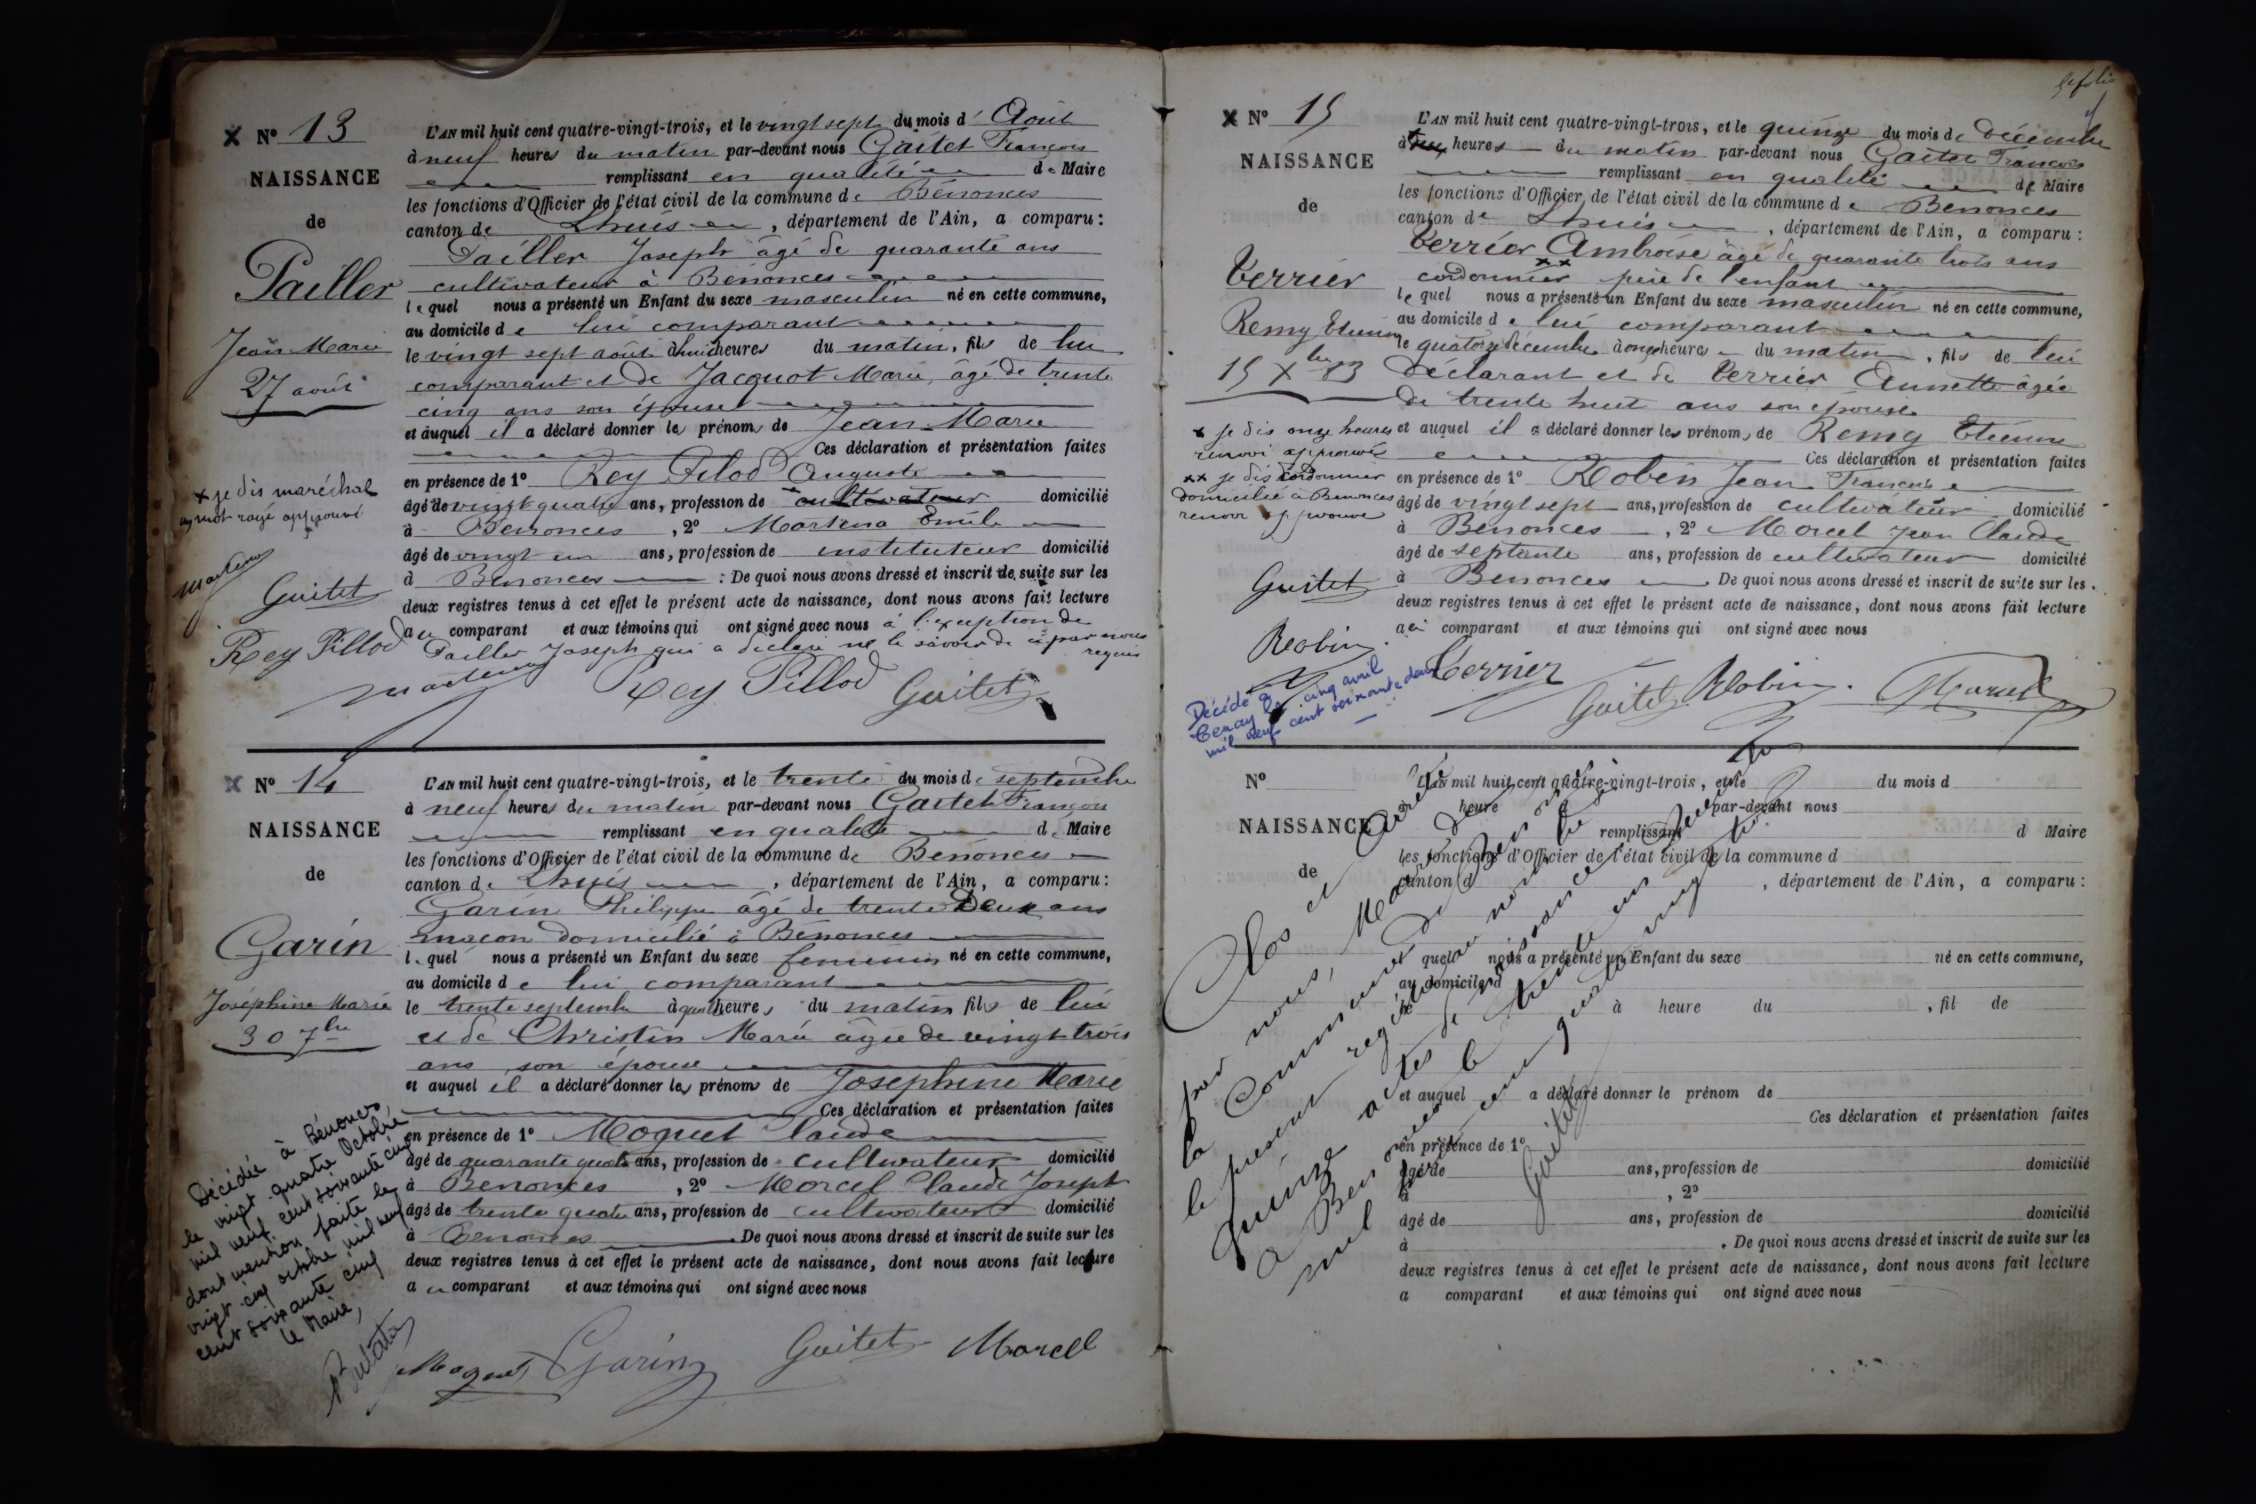 x N° 13
NAISSANCE
de
Pailler
Jean Marie
27 août
x je dis maréchal
un mot rayé approuvé
Guitet
Rey Pillod
L'AN mil huit cent quatre-vingt-trois, et le vingt sept du mois d' Août
à neuf heures du matin par-devant nous Gaitet François
remplissant en qualité de Maire
les fonctions d'Officier de l'état civil de la commune de Bénonces
canton de Lhuis, département de l'Ain, a comparu :
Pailler Joseph âgé de quarante ans
cultivateur à Bénonces
lequel nous a présenté un Enfant du sexe masculin né en cette commune,
au domicile de lui comparant
le vingt sept août à huit heures du matin, fils de lui
comparant et de Jacquot Marie, âgé de trente
cinq ans son épouse
et auquel il a déclaré donner les prénoms de Jean Marie
Ces déclaration et présentation faites
en présence de 1° Rey Pilod Auguste
âgé de vingt quatre ans, profession de cultivateur domicilié
à Benonces, 2° Martena Emile
âgé de vingt un ans, profession de instituteur domicilié
à Benonces : De quoi nous avons dressé et inscrit de suite sur les
deux registres tenus à cet effet le présent acte de naissance, dont nous avons fait lecture
au comparant et aux témoins qui ont signé avec nous à l'exception de
Pailler Joseph qui a déclaré ne le savoir de ce par nous
requis
Rey Pillod Guitet
x N° 14
NAISSANCE
de
Garin
Joséphine Marie
30 7bre
Décédée à Bénonces
le vingt quatre Octobre
mil neuf cent soixante cinq
dont mention faite le
vingt cinq octobre mil neuf
cent soixante cinq
Le Maire,
L'AN mil huit cent quatre-vingt-trois, et le trente du mois de septembre
à neuf heures du matin par-devant nous Gaitet François
remplissant en qualité de Maire
les fonctions d'Officier de l'état civil de la commune de Benonces
canton de Lhuis, département de l'Ain, a comparu :
Garin Philippe âgé de trente Deux ans
maçon domicilié à Bénonces
lequel nous a présenté un Enfant du sexe feminin né en cette commune,
au domicile de lui comparant
le trente septembre à quatre heures du matin fils de lui
et de Christin Marie âgée de vingt trois
ans son épouse
et auquel il a déclaré donner les prénoms de Josephine Marie
Ces déclaration et présentation faites
en présence de 1° Moguet Claude
âgé de quarante quatre ans, profession de cultivateur domicilié
à Benonces, 2° Morcel Claude Joseph
âgé de trente quatre ans, profession de cultivateur domicilié
à Benonces. De quoi nous avons dressé et inscrit de suite sur les
deux registres tenus à cet effet le présent acte de naissance, dont nous avons fait lecture
au comparant et aux témoins qui ont signé avec nous
Moguet Garin Guitet Morcel
x N° 15
NAISSANCE
de
Verrier
Remy Etienne
15 Xbre 83
x je dis onze heures
renvoi approuvé
xx je dis cordonnier
domicilié à Benonces
renvoi approuvé
Guitet
Robin
Décédé à
Tenay le cinq avril
mil neuf cent soixante deux
L'AN mil huit cent quatre-vingt-trois, et le quinze du mois de décembre
à heures du matin par-devant nous Gaitet François
remplissant en qualité de Maire
les fonctions d'Officier de l'état civil de la commune de Benonces
canton de Lhuis, département de l'Ain, a comparu :
Verrier Ambroise âgé de quarante trois ans
xx
cordonnier père de l'enfant
lequel nous a présenté un Enfant du sexe masculin né en cette commune,
au domicile de lui comparant
le quatorze décembre à onze heures du matin, fils de lui
déclarant et de Verrier Annette âgée
de trente huit ans son épouse
et auquel il a déclaré donner les prénoms de Remy Etienne
Ces déclaration et présentation faites
en présence de 1° Robin Jean François
âgé de vingt sept ans, profession de cultivateur domicilié
à Benonces, 2° Morcel Jean Claude
âgé de septante ans, profession de cultivateur domicilié
à Benonces. De quoi nous avons dressé et inscrit de suite sur les
deux registres tenus à cet effet le présent acte de naissance, dont nous avons fait lecture
au comparant et aux témoins qui ont signé avec nous
Verrier Guitet Robin Marcel
N°
NAISSANCE
de
L'AN mil huit cent quatre-vingt-trois, et le du mois d
à heure d par-devant nous
remplissant d Maire
les fonctions d'Officier de l'état civil de la commune d
canton d , département de l'Ain, a comparu :
quel nous a présenté un Enfant du sexe né en cette commune,
au domicile d
le à heure du , fil de
et auquel a déclaré donner le prénom de
Ces déclaration et présentation faites
en présence de 1°
âgé de ans, profession de domicilié
à , 2°
âgé de ans, profession de domicilié
à . De quoi nous avons dressé et inscrit de suite sur les
deux registres tenus à cet effet le présent acte de naissance, dont nous avons fait lecture
a comparant et aux témoins qui ont signé avec nous
Clos et Arrêté
par nous, Maire de
la Commune de Benonces
le présent registre au nombre de
quinze actes de naissances
à Benonces le trente un décembre
mil huit cent quatre vingt trois
Guitet